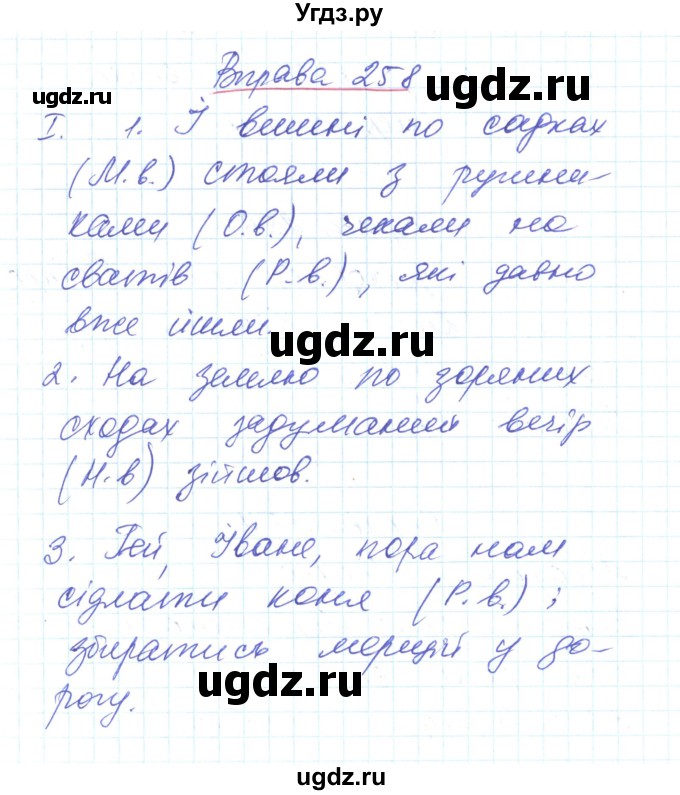 Угдз.ру
Вправа 258
ugdz.ru
ugdz.ru
I. 1. І вишні по садках
(М.в.) стояли з рушни-
ками (О.в.), чекали на
сватів (Р.в.), які давно
вже йшли.
ugdz.ru
2. На землю по зоряних
сходах задуманий вечір
(Н.в) зійшов.
ugdz.ru
3. Гей, Іване, пора нам
сідлати коня (Р.в.) і
збиратись мерщій у до-
рогу.
ugdz.ru
ugdz.ru